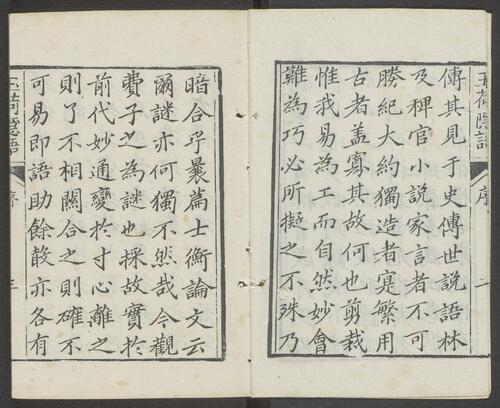 玉荷隱語
序
傳其見于史傳世說語林
及稗官小說家言者不可
勝紀大約獨造者寔繁用
古者盖寡其故何也剪裁
惟我易為工而自然妙會
難為巧必所擬之不殊乃
暗合乎曩篇士衡論文云
爾謎亦何獨不然哉今觀
費子之為謎也採故實於
前代妙通變於寸心離之
則了不相關合之則確不
可易即語助餘㪚亦各有
玉荷隱語
序